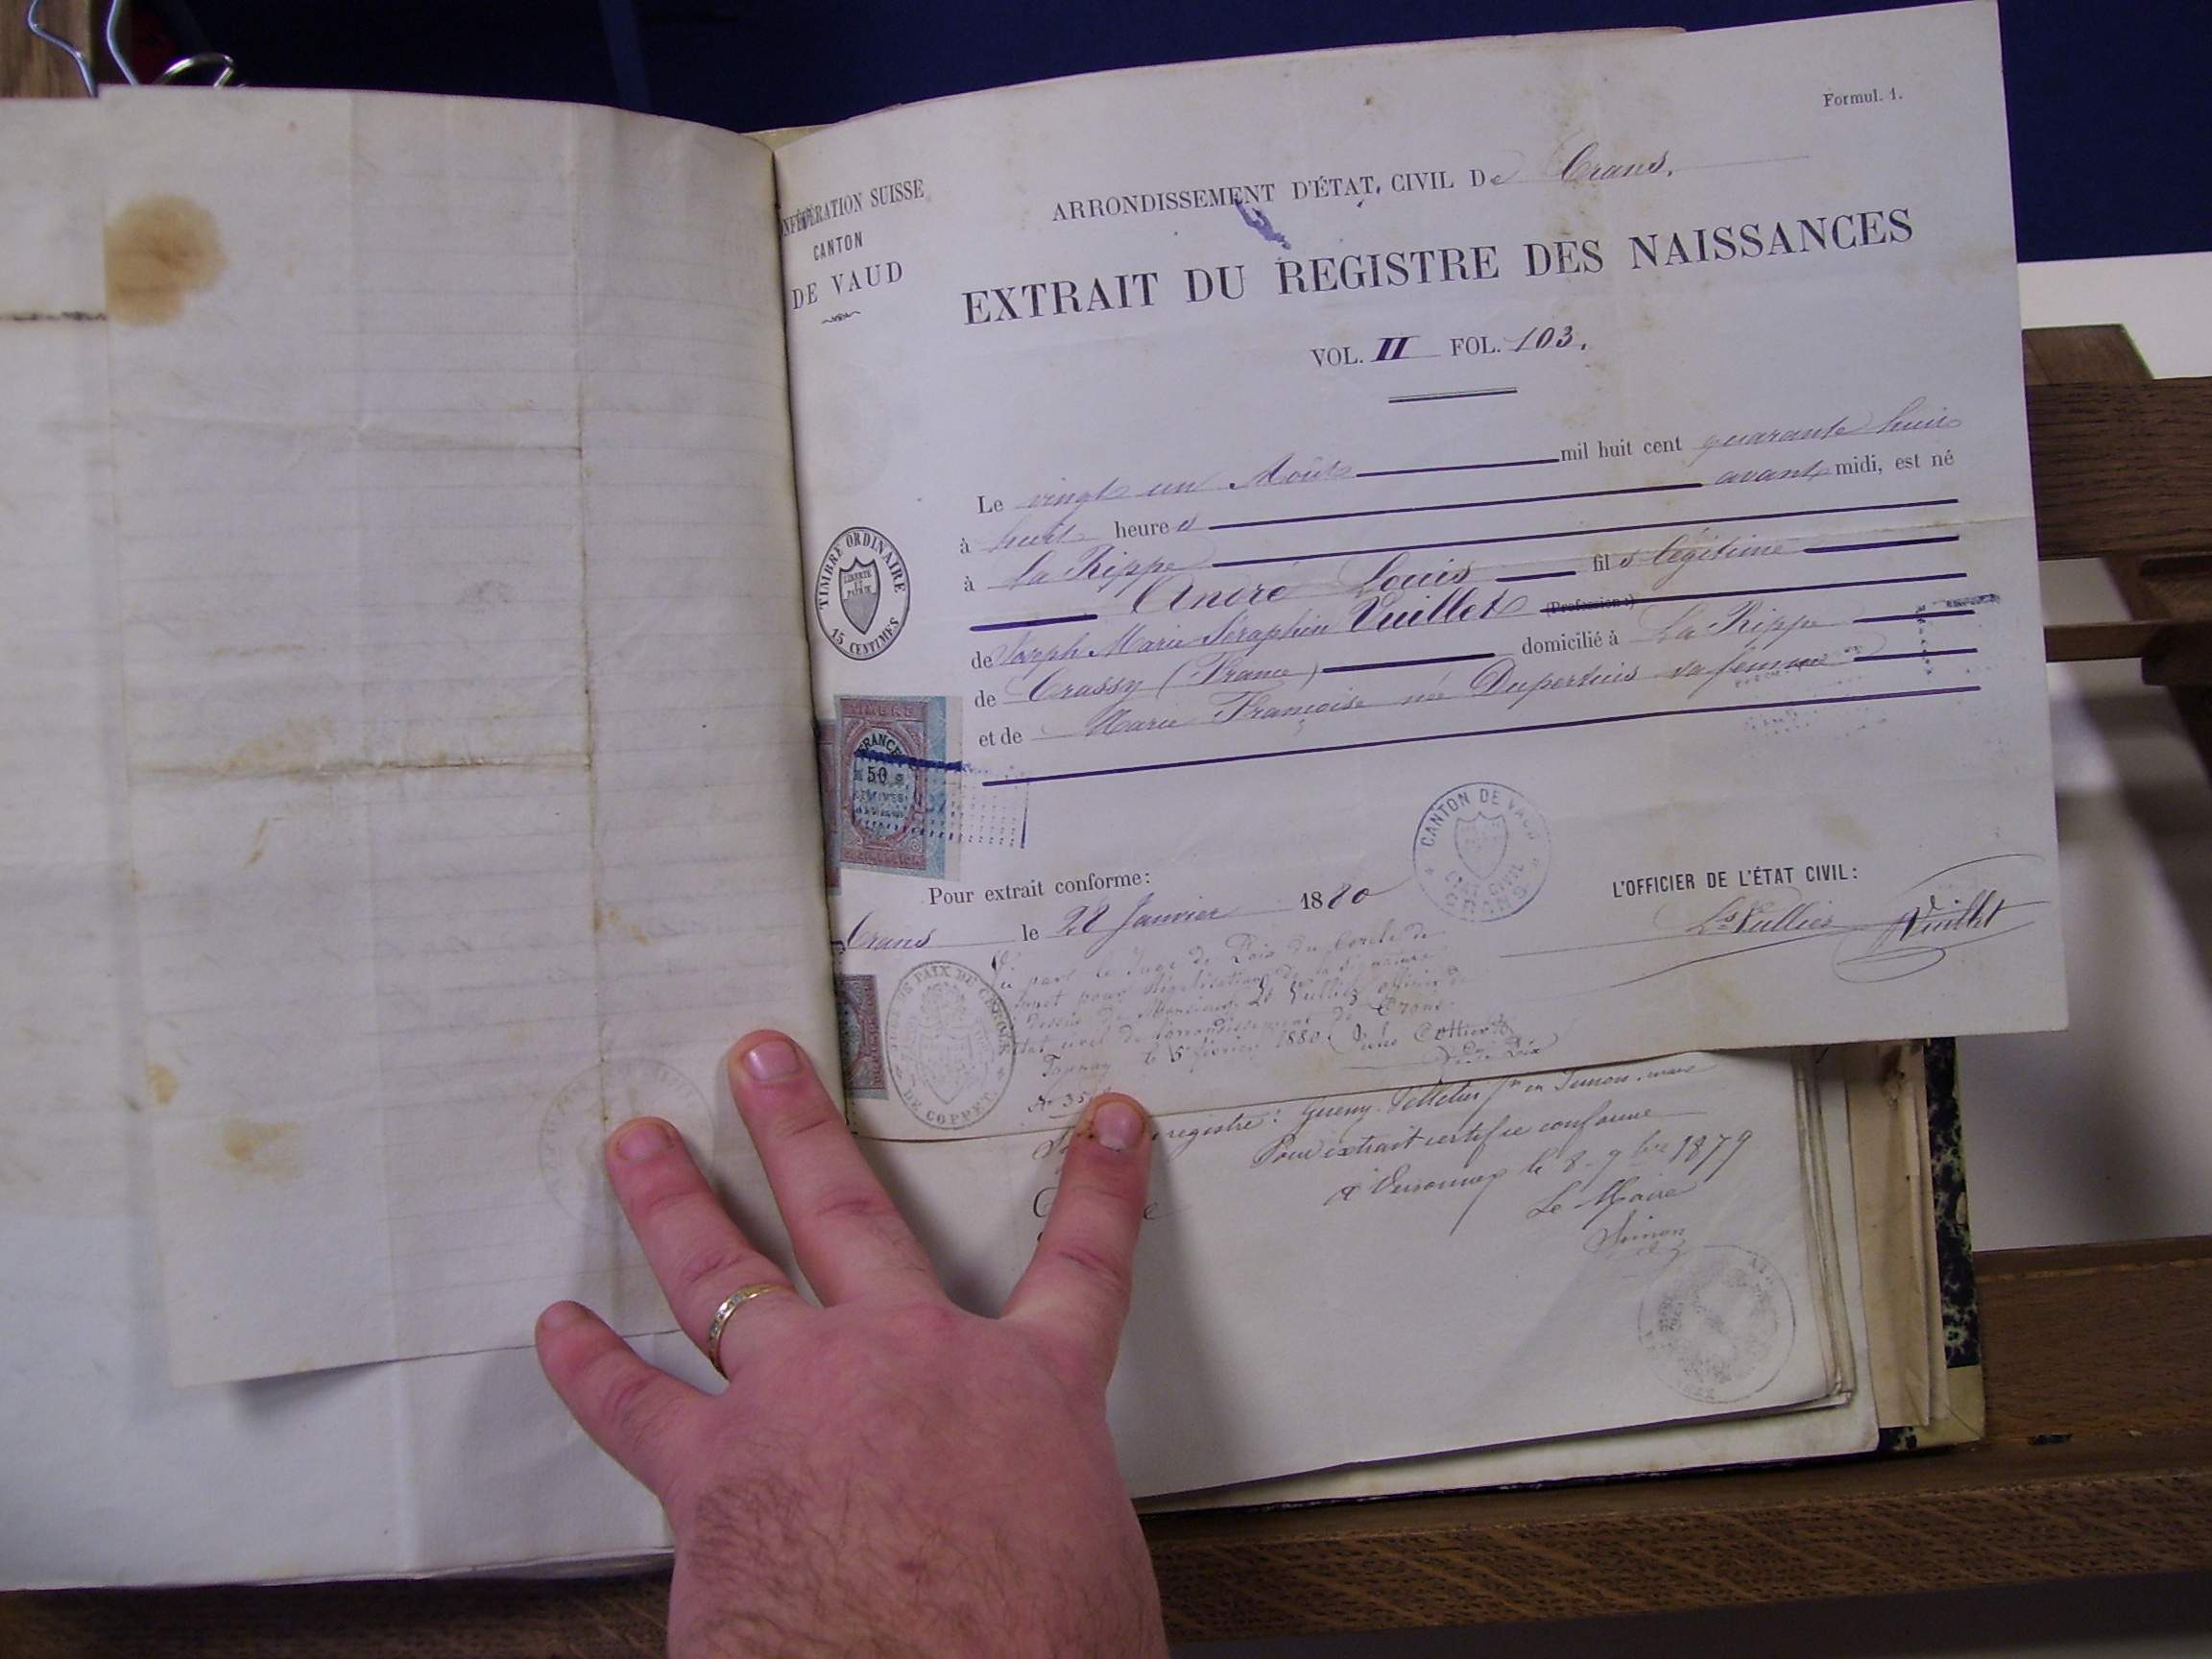 Formul. 1.
NFÉDÉRATION SUISSE
CANTON
DE VAUD
ARRONDISSEMENT D'ÉTAT CIVIL De Crans.
EXTRAIT DU REGISTRE DES NAISSANCES
VOL. II FOL. 103.
Le vingt un Août mil huit cent quarante huit
à huit heures avant midi, est né
à La Rippe
André Louis fils légitime
de Joseph Marie Séraphin Vuillet (Profession:)
de Crassy (France) domicilié à La Rippe
et de Marie Françoise née Dupertuis sa femme
TIMBRE ORDINAIRE
LIBERTÉ
ET
PATRIE
15 CENTIMES
TIMBRE
FRANCE
50
CENTIMES
CANTON DE VAUD
ETAT CIVIL
CRANS
Pour extrait conforme:
Crans le 28 Janvier 1880
L'OFFICIER DE L'ÉTAT CIVIL:
Ls Vullier Vuillet
Vu par le Juge de Paix du Cercle de
pour légalisation de la signature
dessus de Monsieur Ls Vullier officier de
état civil de l'arrondissement de Crans
Tannay le 5 février 1880. Jules Cottier
de Paix
DE PAIX DU CERCLE
DE COPPET
registre: Pelletier Simon, maire
Pour extrait certifié conforme
à Versonnex le 8 9bre 1879
Le Maire
Simon